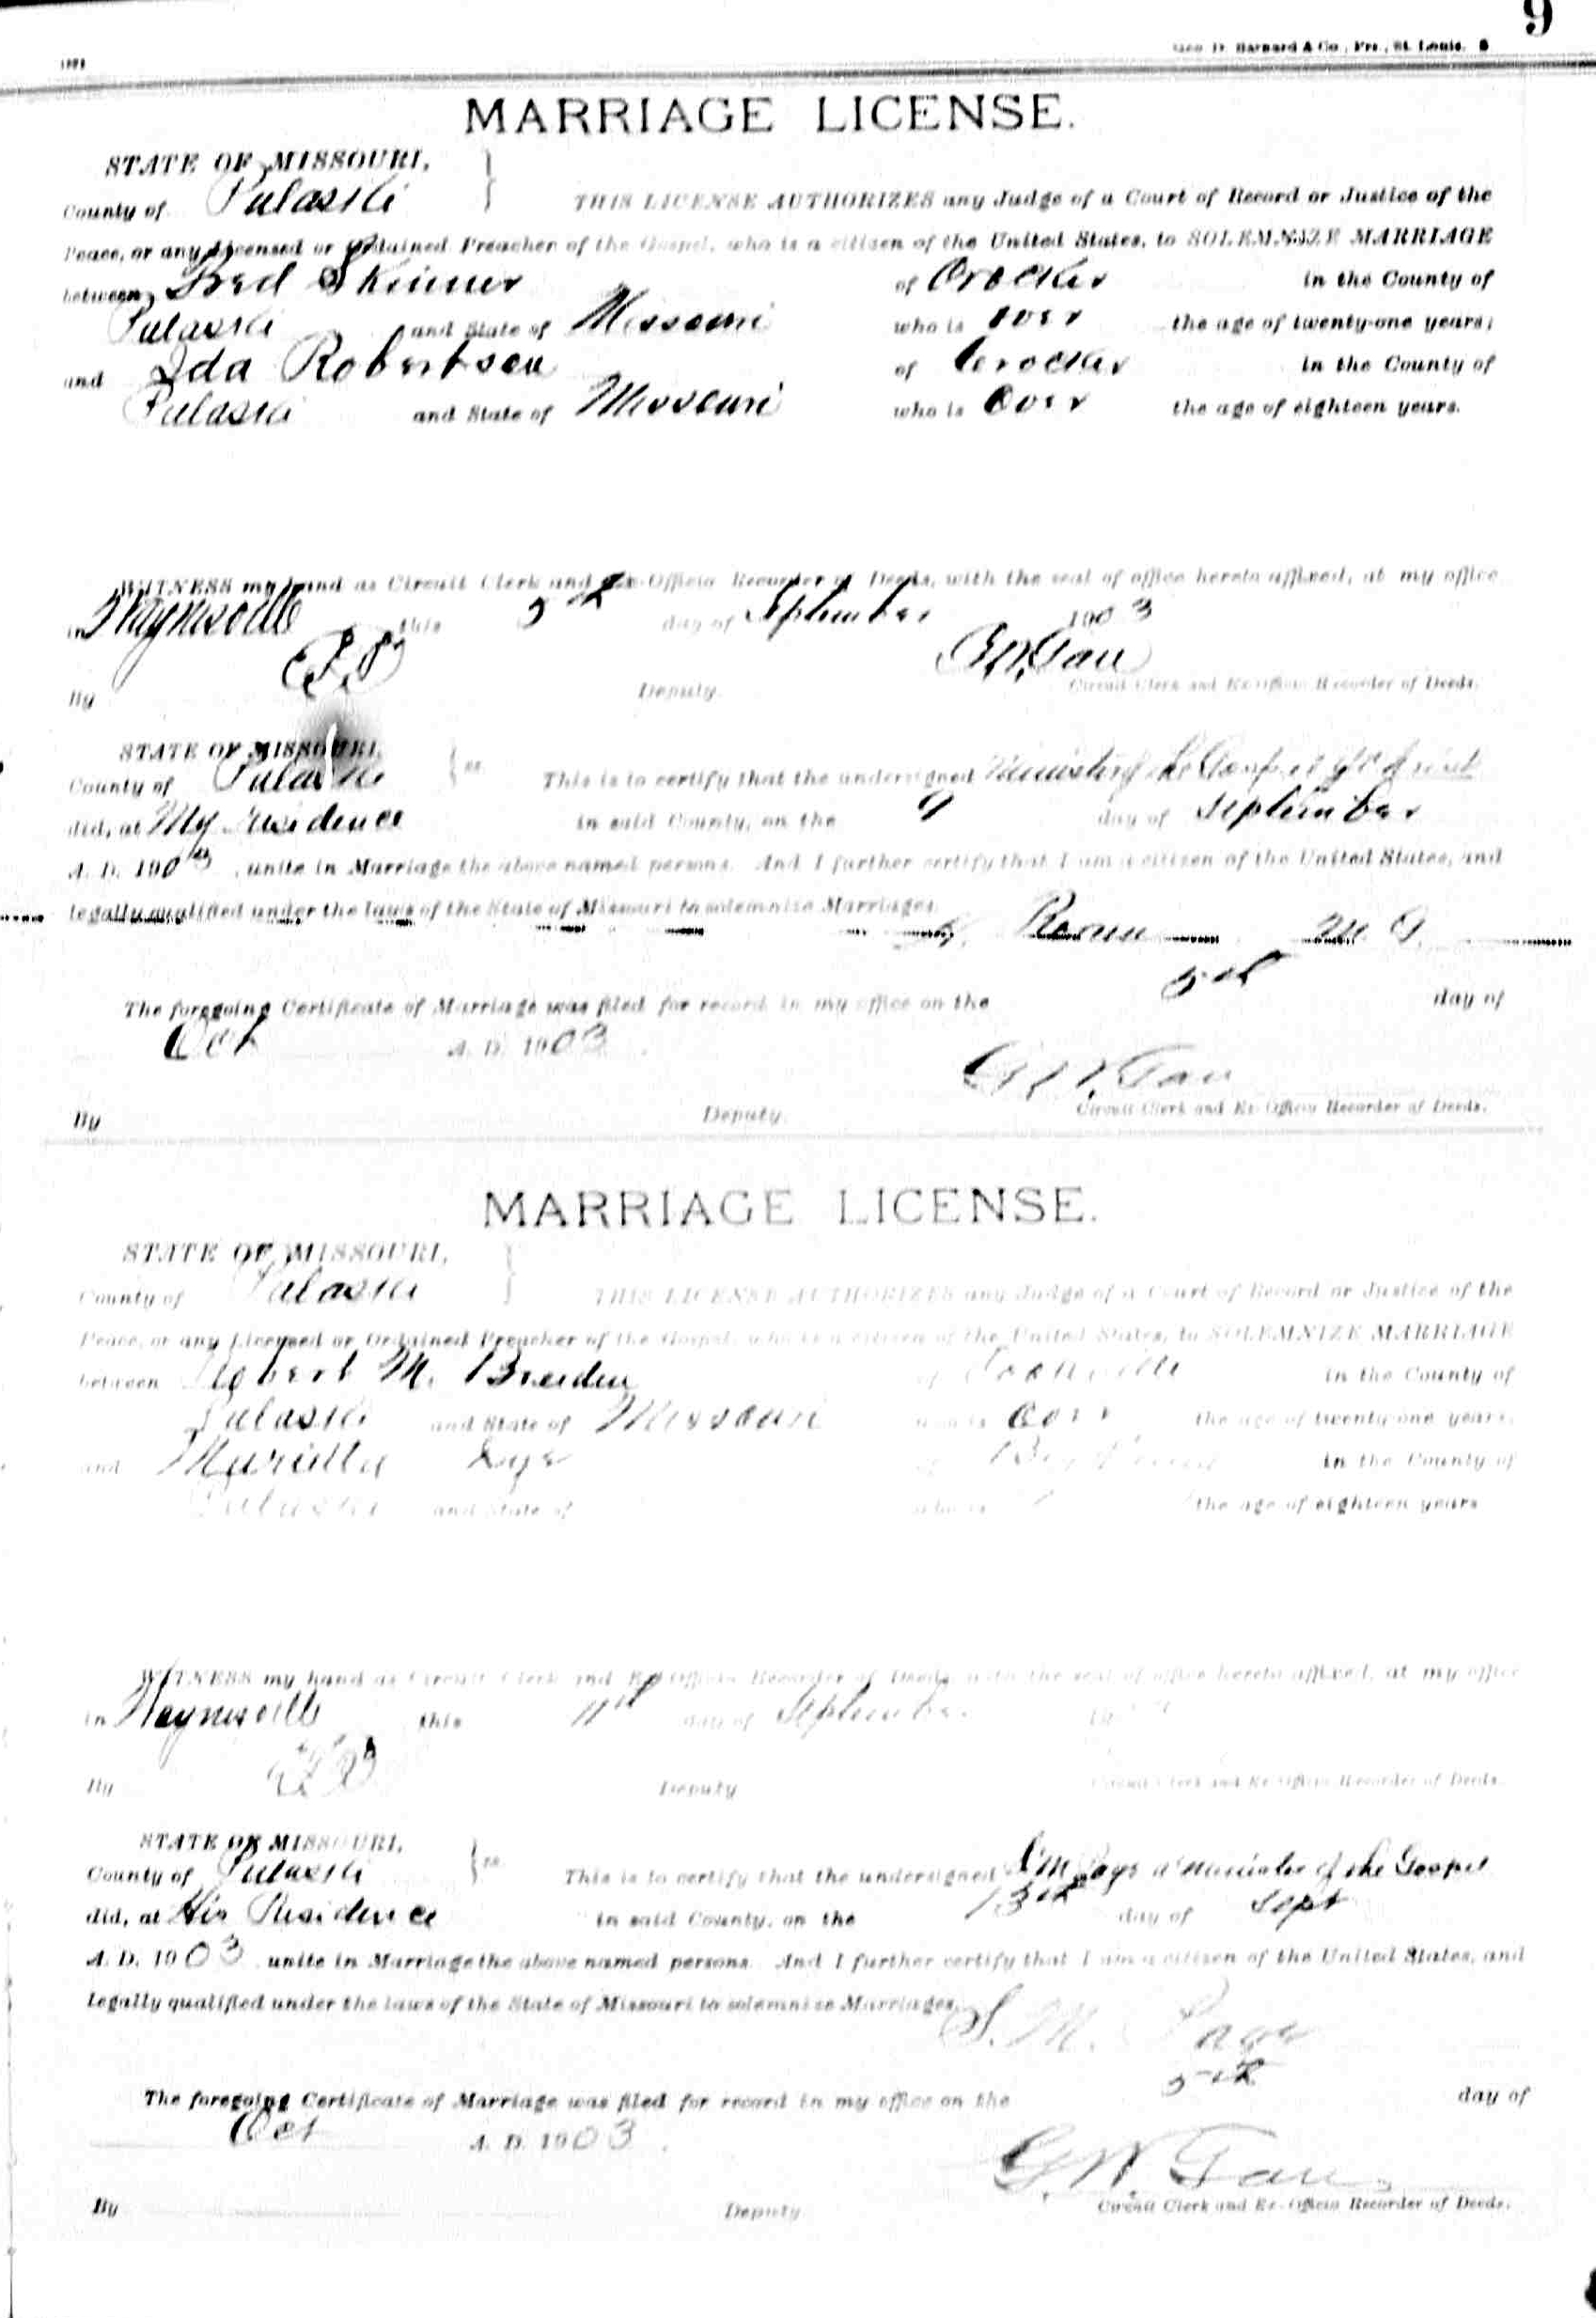 9
Geo. D. Barnard & Co., Prs., St. Louis.
MARRIAGE LICENSE.
STATE OF MISSOURI,
County of Pulaski THIS LICENSE AUTHORIZES any Judge of a Court of Record or Justice of the
Peace, or any Licensed or Ordained Preacher of the Gospel, who is a citizen of the United States, to SOLEMNIZE MARRIAGE
between Fred Skinner of Crocker in the County of
Pulaski and State of Missouri who is over the age of twenty-one years;
and Ida Robertson of Crocker in the County of
Pulaski and State of Missouri who is Over the age of eighteen years.
WITNESS my hand as Circuit Clerk and Ex-Officio Recorder of Deeds, with the seal of office hereto affixed, at my office
in Waynesville this 5th day of September 1903
By Deputy. Circuit Clerk and Ex-Officio Recorder of Deeds.
STATE OF MISSOURI,
County of Pulaski ss. This is to certify that the undersigned
did, at My residence in said County, on the 9 day of September
A. D. 1903, unite in Marriage the above named persons. And I further certify that I am a citizen of the United States, and
legally qualified under the laws of the State of Missouri to solemnize Marriages.
M. G.
The foregoing Certificate of Marriage was filed for record in my office on the 5th day of
Oct A. D. 1903.
By Deputy. Circuit Clerk and Ex-Officio Recorder of Deeds.
MARRIAGE LICENSE.
STATE OF MISSOURI,
County of Pulaski THIS LICENSE AUTHORIZES any Judge of a Court of Record or Justice of the
Peace, or any Licensed or Ordained Preacher of the Gospel, who is a citizen of the United States, to SOLEMNIZE MARRIAGE
between Robert M. Breeden of in the County of
Pulaski and State of Missouri who is over the age of twenty-one years;
and of in the County of
Pulaski and State of who is the age of eighteen years
WITNESS my hand as Circuit Clerk and Ex-Officio Recorder of Deeds, with the seal of office hereto affixed, at my office
in Waynesville this 11th day of September
By Deputy Circuit Clerk and Ex-Officio Recorder of Deeds.
STATE OF MISSOURI,
County of Pulaski ss. This is to certify that the undersigned S M Page a minister of the Gospel
did, at His Residence in said County, on the 13th day of Sept
A. D. 1903 unite in Marriage the above named persons. And I further certify that I am a citizen of the United States, and
legally qualified under the laws of the State of Missouri to solemnize Marriages.
S. M. Page
The foregoing Certificate of Marriage was filed for record in my office on the 5th day of
Oct A. D. 1903.
G. W.
By Deputy Circuit Clerk and Ex-Officio Recorder of Deeds.